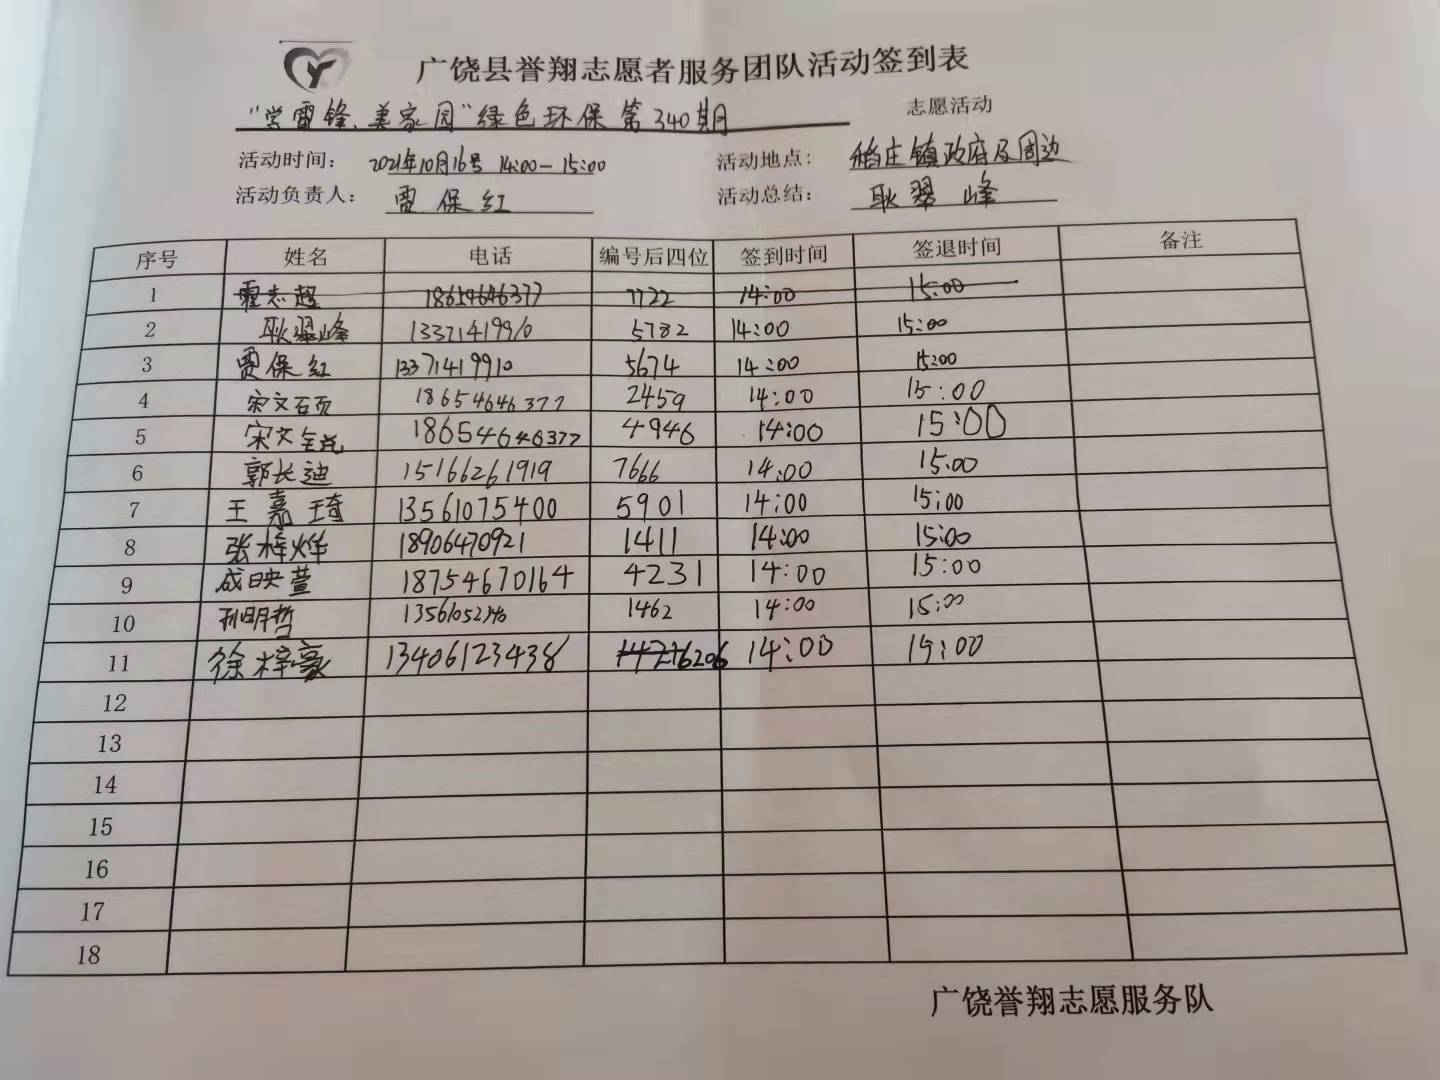 广饶县誉翔志愿者服务团队活动签到表
“学雷锋、美家园”绿色环保第340期 志愿活动
活动时间： 2021年10月16号 14:00-15:00 活动地点： 稻庄镇政府及周边
活动负责人： 贾保红 活动总结： 耿翠峰
序号 姓名 电话 编号后四位 签到时间 签退时间 备注
1 霍志超 18654646377 7722 14:00 15:00
2 耿翠峰 13371419910 5782 14:00 15:00
3 贾保红 13371419910 5674 14:00 15:00
4 宋文硕 18654646377 2459 14:00 15:00
5 宋文 18654646377 4946 14:00 15:00
6 郭长迪 15166261919 7666 14:00 15:00
7 王嘉琦 13561075400 5901 14:00 15:00
8 张梓烨 18906470921 1411 14:00 15:00
9 成映萱 18754670164 4231 14:00 15:00
10 孙明哲 1462 14:00 15:00
11 徐梓豪 13406123438 6206 14:00 15:00
12
13
14
15
16
17
18
广饶誉翔志愿服务队